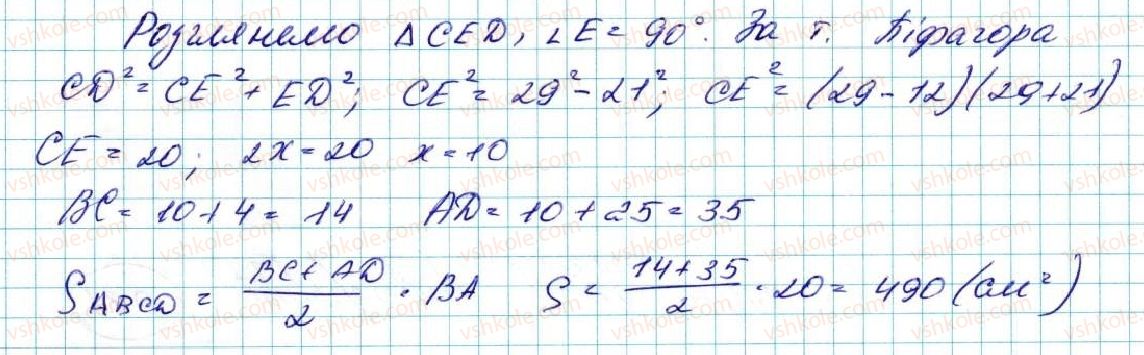 Розглянемо △CED, ∠E = 90°. За т. Піфагора
CD² = CE² + ED²; CE² = 29² - 21²; CE² = (29 - 12)(29 + 21)
CE = 20; 2x = 20 x = 10
BC = 10 + 4 = 14 AD = 10 + 25 = 35
S ABCD = (BC + AD)/2 · BA S = (14 + 35)/2 · 20 = 490 (см²)